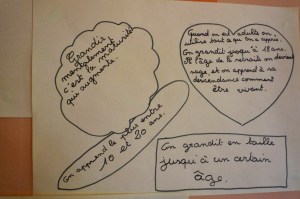 Grandir
mentalement
c'est la maturité
qui augmente.
Quand on est adulte on
utilise tout ce qu'on a appris.
On grandit jusqu'à 18 ans.
À l'âge de la retraite on devient
sage, et on apprend à sa
descendance comment
être vivant.
On apprend le plus entre
10 et 20 ans.
On grandit en taille
jusqu'à un certain
âge.